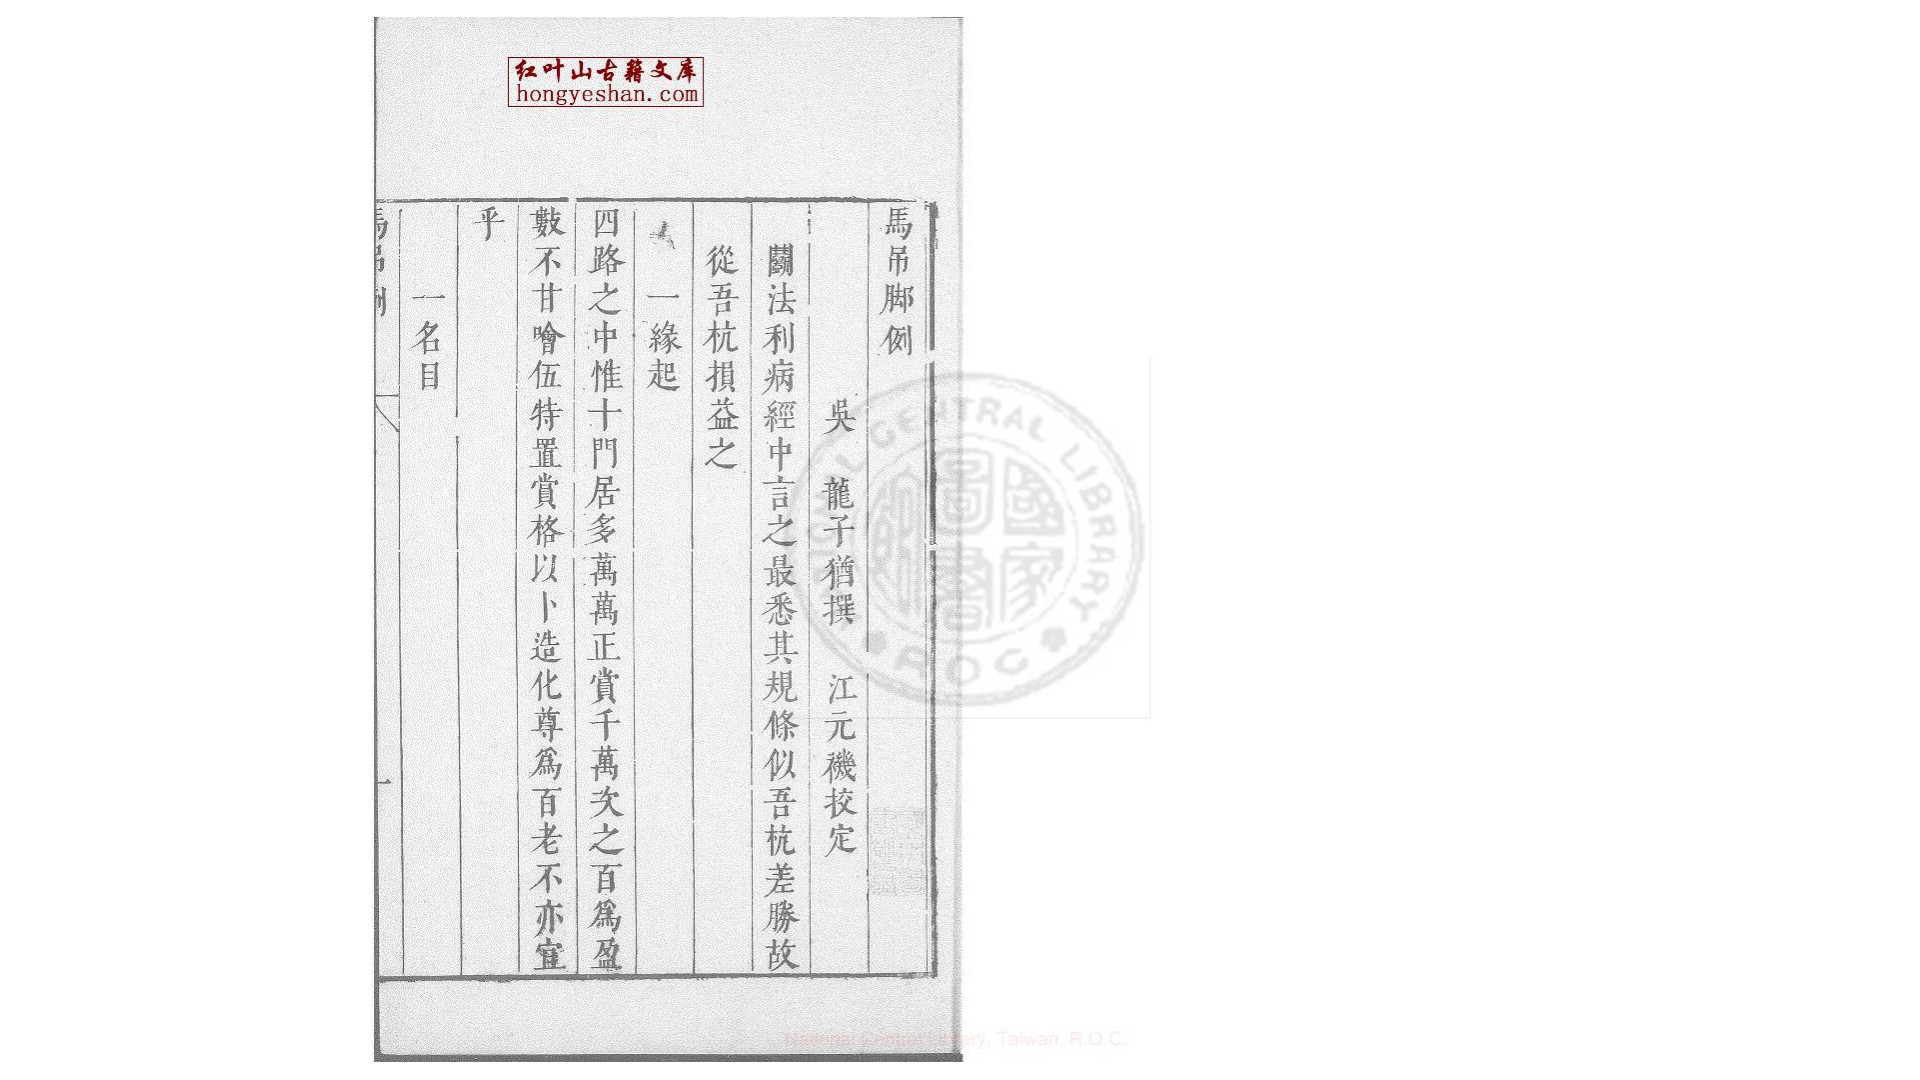 红叶山古籍文库
hongyeshan.com
馬吊脚例
吳 龍子猶撰 江元禨挍定
鬭法利病經中言之最悉其規條似吾杭差勝故
從吾杭損益之
一緣起
四路之中惟十門居多萬萬正賞千萬次之百爲盈
數不甘噲伍特置賞格以卜造化尊爲百老不亦宜
乎
一名目
馬吊例
一
NATIONAL CENTRAL LIBRARY ROC
國家圖書館
National Central Library, Taiwan, R.O.C.